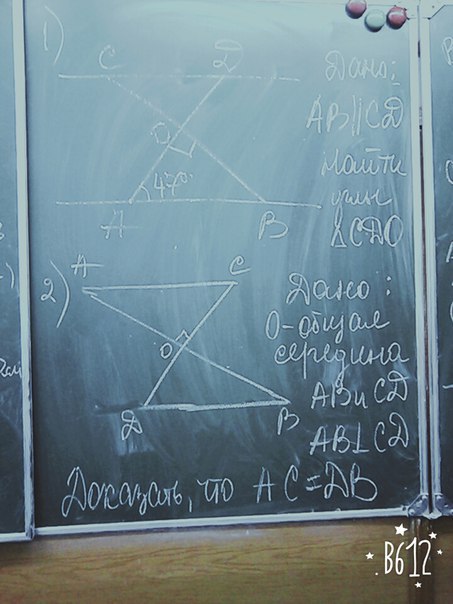 1)
C D
O
47°
A B
Дано:
AB||CD
Найти
углы
ΔCDO
2)
A C
O
D B
Дано:
O-общая
середина
AB и CD
AB⊥CD
Доказать, что AC=DB
B612